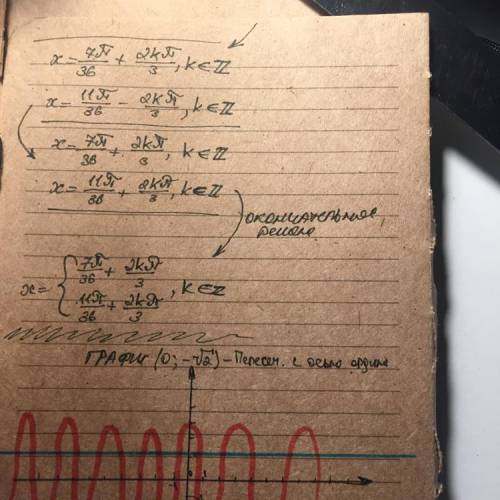 x = 7π/36 + 2kπ/3, k∈ℤ
x = 11π/36 − 2kπ/3, k∈ℤ
x = 7π/36 + 2kπ/3, k∈ℤ
x = 11π/36 + 2kπ/3, k∈ℤ
окончательное
x = { 7π/36 + 2kπ/3
11π/36 + 2kπ/3 , k∈Z
ГРАФИК (0; −√2) – Пересеч. с осью ординат